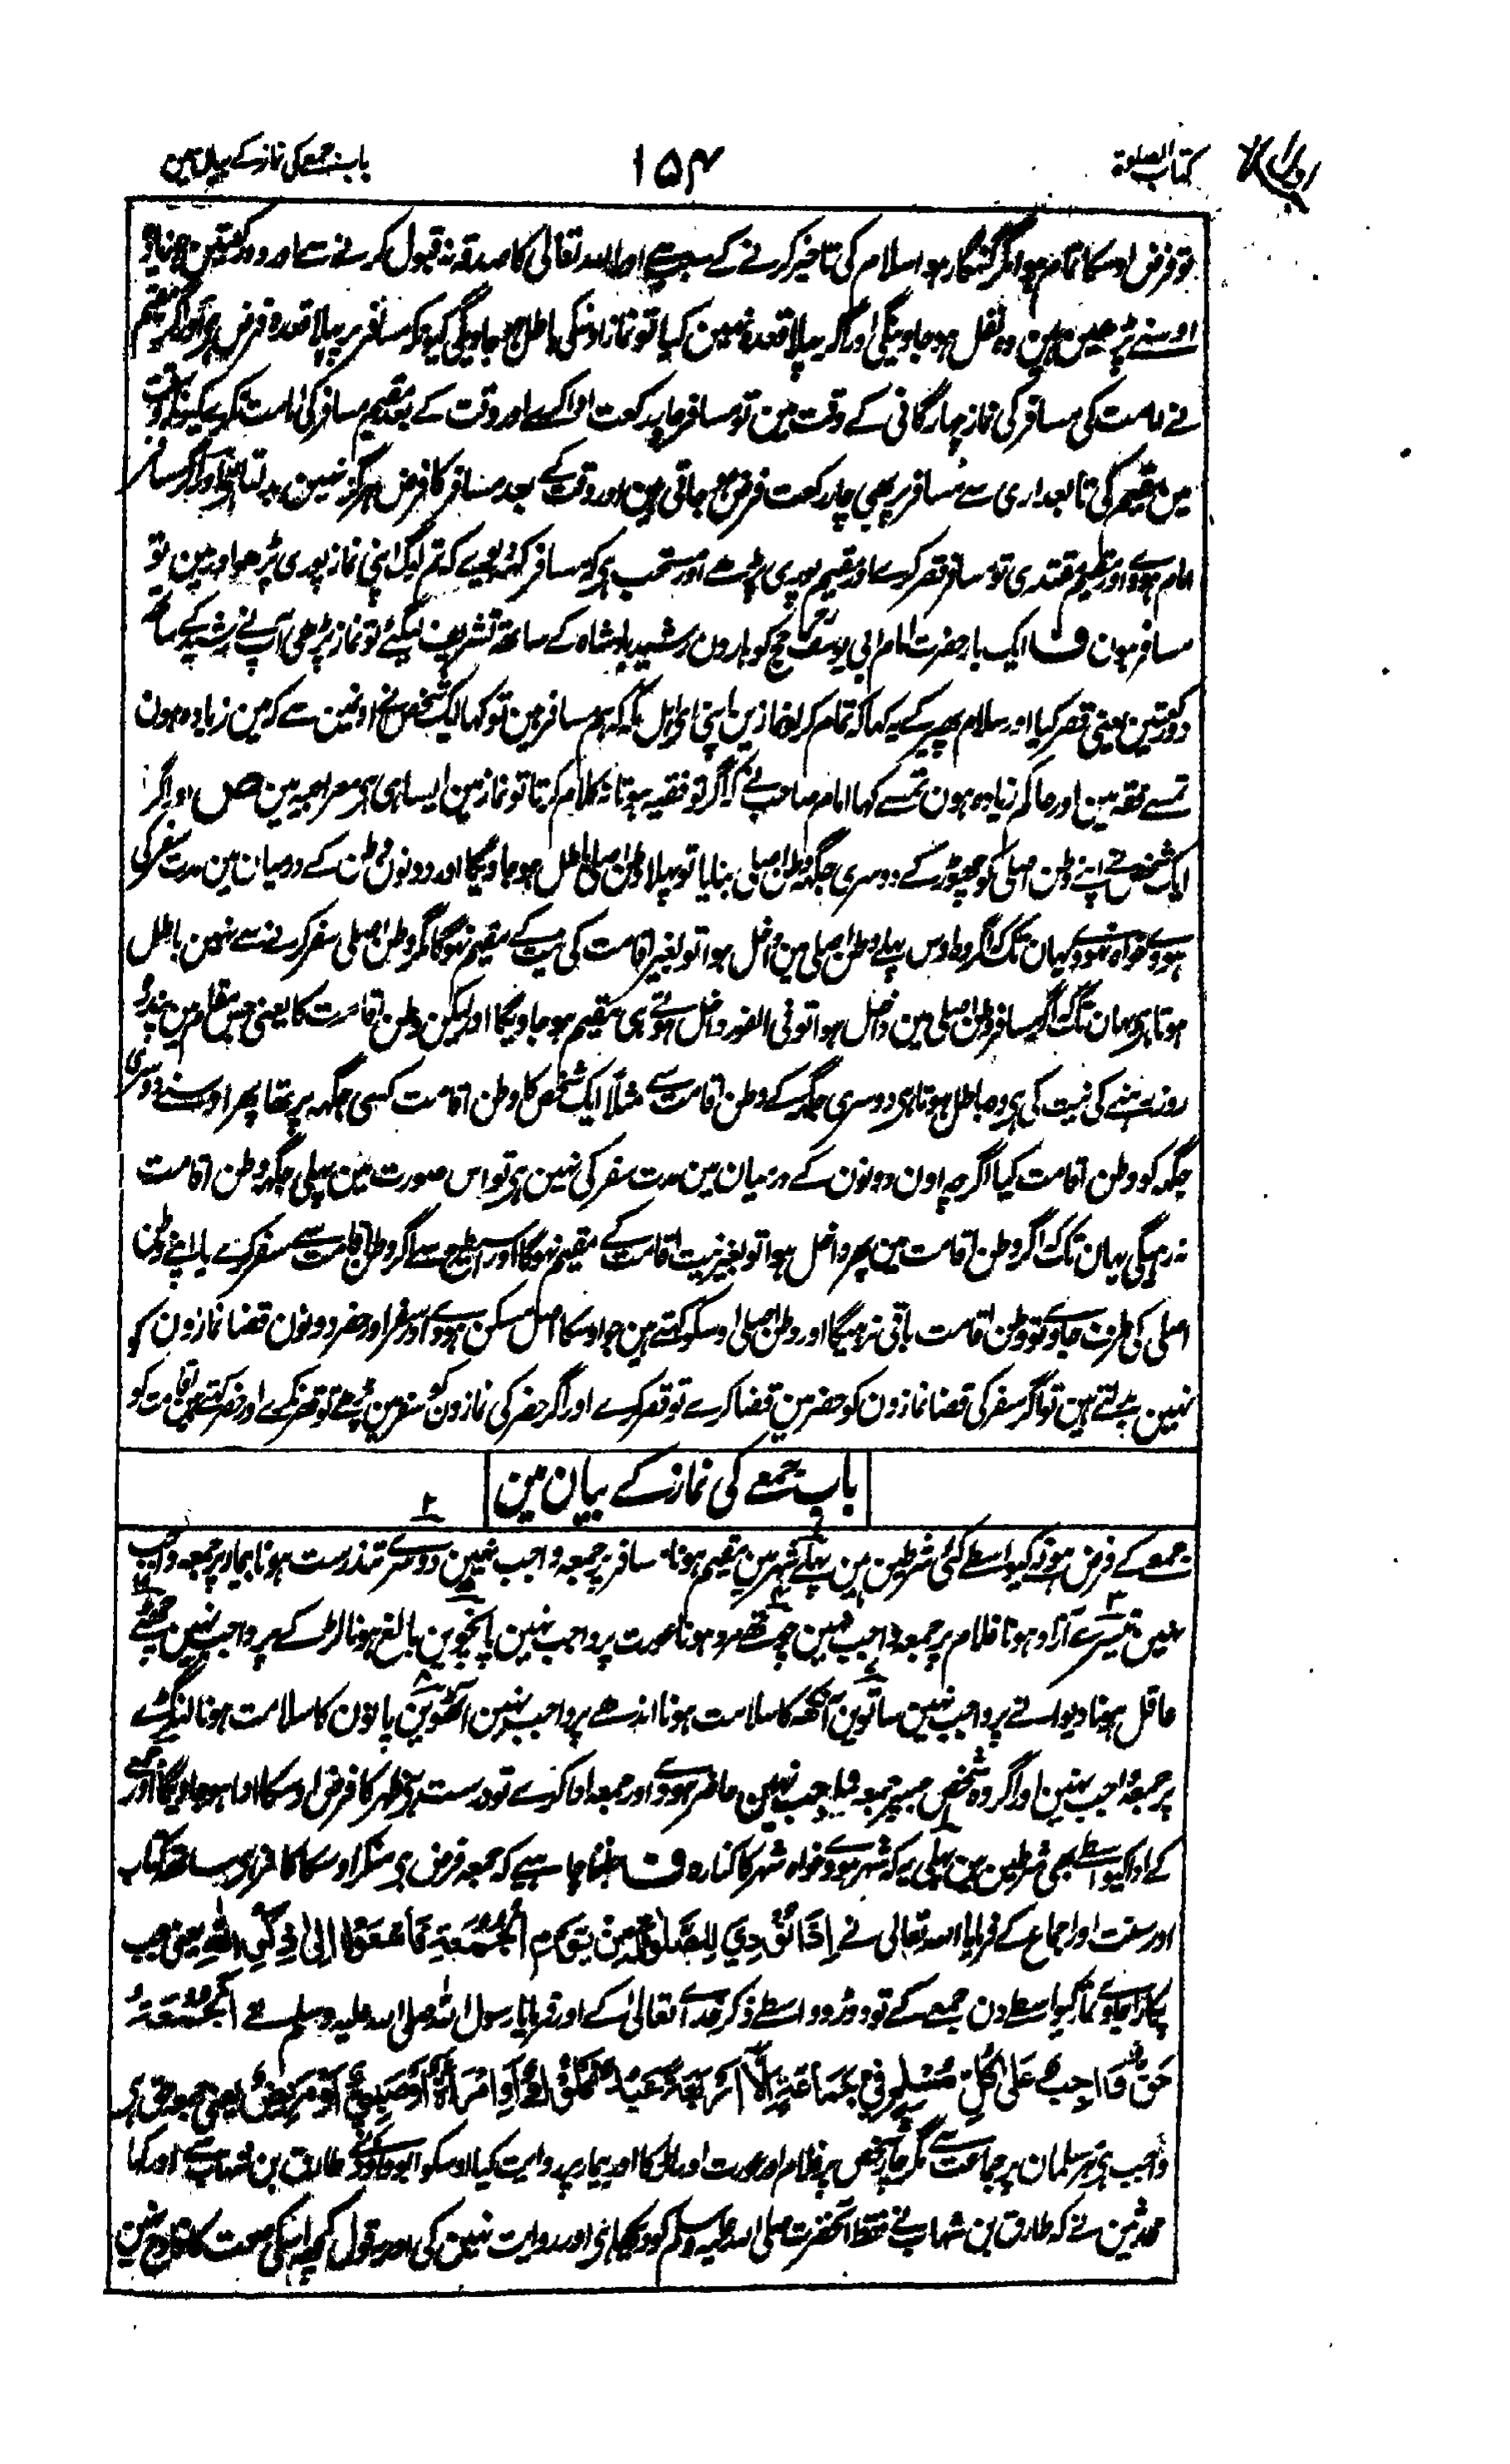 کتاب الصلوة
۱۵۴
باب جمعے کی نماز کے بیان مین
تو فرض اوسکا تمام ہوا مگر گنہگار ہوا سلام کی تاخیر کرنے کے سبب سے اور اللہ تعالی کا صدقہ نہ قبول کرنے سے اور دو رکعتین جو زیادہ
اوسنے پڑھین ہین وہ نفل ہو جاوینگی اور اگر پہلا قعدہ نہین کیا تو نماز اوسکی باطل ہو جاویگی کیونکہ مسافر پر پہلا قعدہ فرض ہی اور اگر مقیم
نے امامت کی مسافر کی نماز چارگانی کے وقت مین تو مسافر چار رکعت ادا کرے اور وقت کے بعد مقیم مسافر کی امامت نکرے کیونکہ وقت
مین مقیم کی تابعداری سے مسافر پر بھی چار رکعت فرض ہو جاتی ہین اور وقت کے بعد مسافر کا فرض ہرگز نہین بدلتا اور اگر مسافر
امام ہووے اور مقیم مقتدی تو مسافر قصر کرے اور مقیم پوری پڑھے اور مستحب ہی کہ مسافر کہدیوے کہ تم لوگ اپنی نماز پوری پڑھو اور مین تو
مسافر ہون ف ایک بار حضرت امام ابی یوسف حج کو ہارون رشید بادشاہ کے ساتھ تشریف لیگئے تو نماز پڑھی آپ نے رشید کے ساتھ
دو رکعتین یعنی قصر کیا اور سلام پھیر کے یہ کہا کہ تمام کر لو نمازین اپنی ای اہل مکہ کہ ہم مسافر ہین تو کہا ایک شخص نے اونمین سے کہ مین زیادہ ہون
تمسے فقہ مین اور حاکم زیادہ ہون تمسے کہا امام صاحب نے کہ اگر تو فقیہ ہوتا نہ کلام کرتا تو نماز مین ایسا ہی ہی معراجیہ مین ص اور اگر
ایک شخص نے اپنے وطن اصلی کو چھوڑ کے دوسری جگہ وطن اصلی بنایا تو پہلا وطن اصلی باطل ہو جاویگا اور دونون وطن کے درمیان مین مدت سفر کی
ہووے خواہ نہووے یہان تک کہ اگر وہ اوس پہلے وطن اصلی مین داخل ہوا تو بغیر اقامت کی نیت کے مقیم نہوگا مگر وطن اصلی سفر کرنے سے نہین باطل
ہوتا ہی یہان تک کہ اگر مسافر وطن اصلی مین داخل ہوا تو فی الفور داخل ہوتے ہی مقیم ہو جاویگا اور لیکن وطن اقامت کا یعنی جس مقام مین پندرہ
روز رہنے کی نیت کی ہی وہ باطل ہوتا ہی دوسری جگہ کے وطن اقامت سے مثلا ایک شخص کا وطن اقامت کسی جگہہ پر تھا پھر اوسنے دوسری
جگہ کو وطن اقامت کیا اگرچہ اون دونون کے درمیان مین مدت سفر کی نہین ہی تو اس صورت مین پہلی جگہ وطن اقامت
نہ رہیگی یہان تک کہ اگر وطن اقامت مین پھر داخل ہوا تو بغیر نیت اقامت کے مقیم نہوگا اور اسیطرح سے اگر وطن اقامت سے سفر کرے یا اپنے وطن
اصلی کی طرف جاوے تو وطن اقامت باقی نرہیگا اور وطن اصلی اوسکو کہتے ہین جو اوسکا اصل مسکن ہووے اور سفر اور حضر دونون قضا نمازون کو
نہین بدلتے ہین تو اگر سفر کی قضا نمازون کو حضر مین قضا کرے تو قصر کرے اور اگر حضر کی نمازون کو سفر مین پڑھے تو قصر نکرے اور حضر کہتے ہین اقامت کو
باب جمعے کی نماز کے بیان مین
۲
جمعے کے فرض ہونے کیواسطے کئی شرطین ہین پہلے شہر مین مقیم ہونا مسافر پر جمعہ واجب نہین دوسرے تندرست ہونا بیمار پر جمعہ واجب
نہین تیسرے آزاد ہونا غلام پر جمعہ واجب نہین چوتھے مرد ہونا عورت پر واجب نہین پانچوین بالغ ہونا لڑکے پر واجب نہین چھٹے
عاقل ہونا دیوانے پر واجب نہین ساتوین آنکھ کا سلامت ہونا اندھے پر واجب نہین آٹھوین پانون کا سلامت ہونا لنگڑے
پر جمعہ واجب نہین اور اگر وہ شخص جسپر جمعہ واجب نہین حاضر ہووے اور جمعہ ادا کرے تو درست ہی ظہر کا فرض اوسکا ادا ہو جاویگا اور جمعے
کے ادا کیواسطے بھی شرطین ہین پہلی یہ کہ شہر ہووے خواہ شہر کا کنارہ ف جاننا چاہیے کہ جمعہ فرض ہی منکر اوسکا کافر ہی ساتھ کتاب
اور سنت اور اجماع کے فرمایا اللہ تعالی نے اِذَا نُوْدِيَ لِلصَّلٰوةِ مِنْ يَّوْمِ الْجُمُعَةِ فَاسْعَوْا اِلٰى ذِكْرِ اللّٰهِ یعنی جب
پکارا جاوے نماز کیواسطے دن جمعے کے تو دوڑو واسطے ذکر خداے تعالی کے اور فرمایا رسول اللہ صلی اللہ علیہ وسلم نے اَلْجُمُعَةُ
حَقٌّ وَاجِبٌ عَلٰى كُلِّ مُسْلِمٍ فِيْ جَمَاعَةٍ اِلَّا اَرْبَعَةً عَبْدٌ مَمْلُوْكٌ اَوِ امْرَأَةٌ اَوْ صَبِيٌّ اَوْ مَرِيْضٌ یعنی جمعہ حق ہی
واجب ہی ہر مسلمان پر جماعت سے مگر چار شخص پر غلام اور عورت اور لڑکا اور بیمار پر روایت کیا اوسکو ابو داؤد نے طارق بن شہاب سے اور کہا
محدثین نے کہ طارق بن شہاب نے فقط آنحضرت صلی اللہ علیہ وسلم کو دیکھا ہی اور روایت نہین کی اور یہ قول کچھ اسکی صحت کا قادح نہین